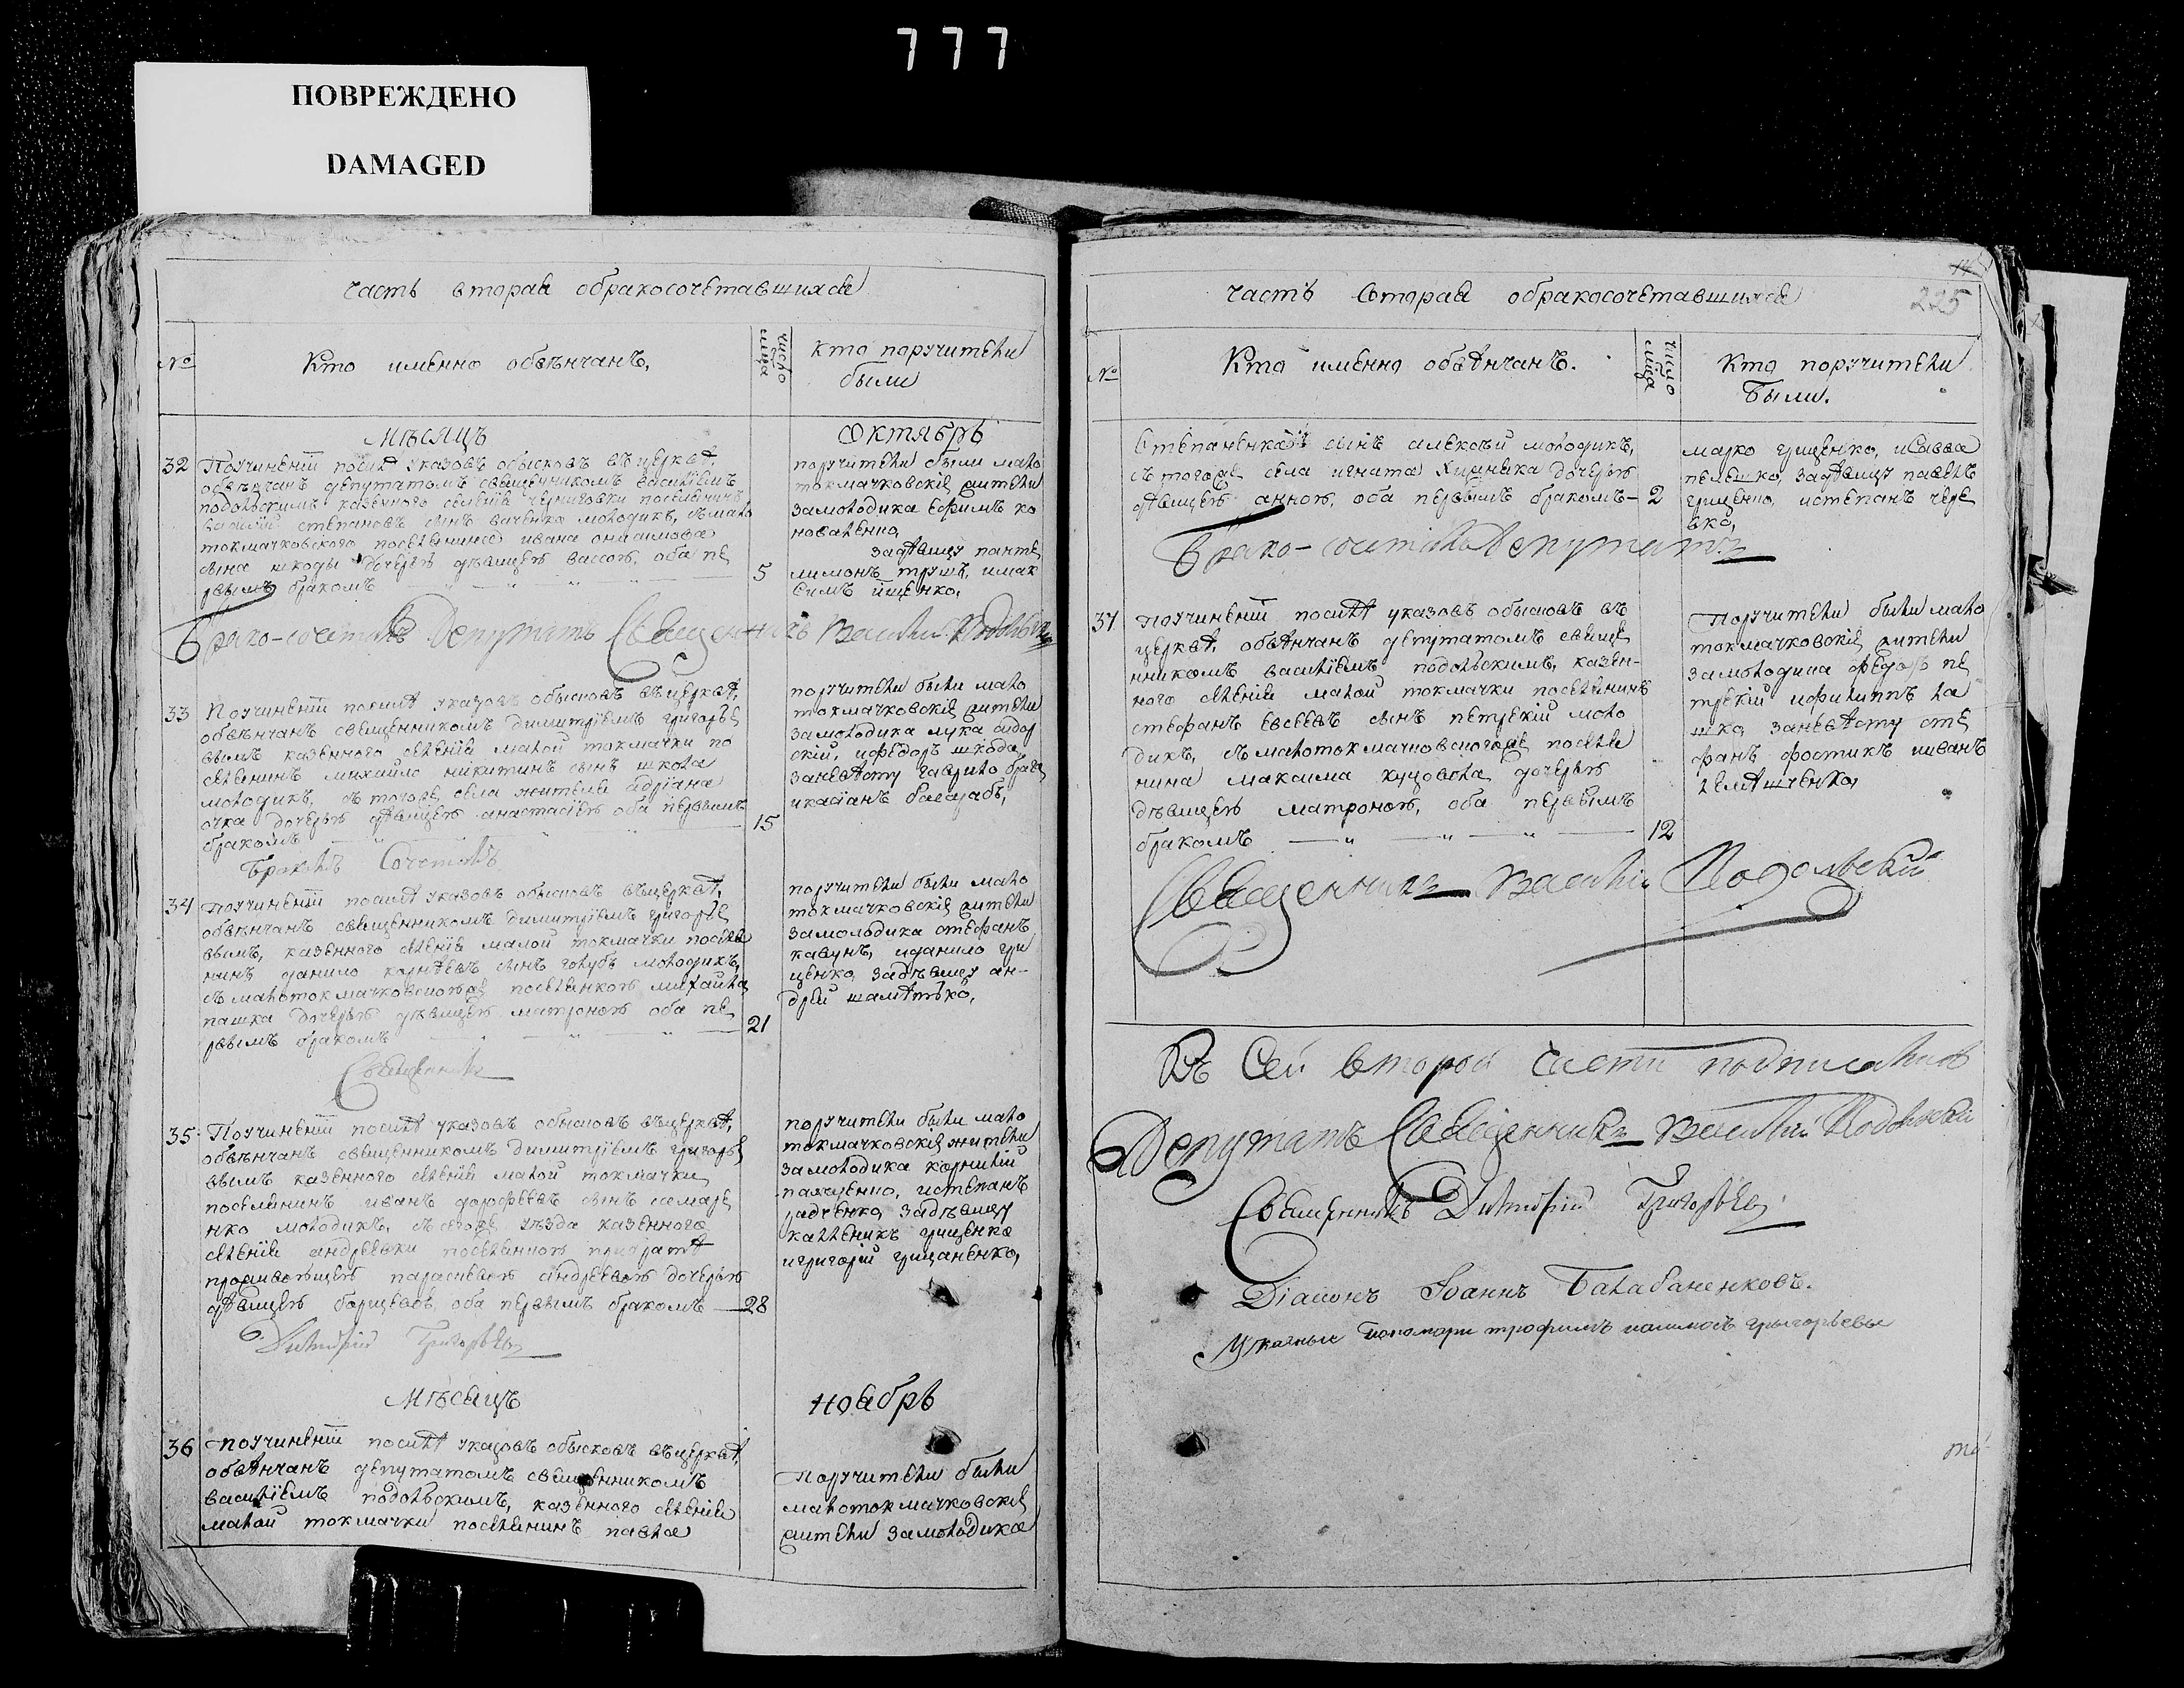 777
ПОВРЕЖДЕНО
DAMAGED
часть вторая обракосочетавшихся
№
Кто именно обвѣнчанъ,
число
мца
Кто поручители
были
Мѣсяцъ
Октябрь
32
Поучиненіи посилѣ указовъ обысковъ въцерквѣ,
обвѣнчанъ депутатомъ священникомъ василіемъ
подольскимъ казенного селенія черниговки поселянинъ
василій степановъ сынъ ваченко молодикъ, съмало
токмачковского поселянина ивана онисимова
сына шкоды дочерью дѣвицею вассою, оба пе
рвымъ бракомъ
5
поручители были мало
токмачковскія жители
замолодика ефимъ ко
новаленко,
задѣвицу панте
лимонъ трушъ, имак
симъ ищенко,
Брако-сочеталъ Депутатъ Священникъ Василій Подольскій
33
Поучиненіи посилѣ указовъ обысковъ въцерквѣ,
обвѣнчанъ священникомъ димитріемъ григорье
вымъ казенного селенія малой токмачки по
селянинъ михайло никитинъ сынъ школа
молодикъ, съ тогоже села жителя адріана
очка дочерью дѣвицею анастасіею оба первымъ
бракомъ
15
поручители были мало
токмачковскія жители
замолодика лука сидор
скій, ифедоръ шкода,
заневѣсту гаврило брага
икасіанъ басарабъ,
Бракъ Сочеталъ
34
поучиненіи посилѣ указовъ обысковъ въцерквѣ,
обвѣнчанъ священникомъ димитріемъ григорье
вымъ, казенного селенія малой токмачки поселя
нинъ данило корнѣевъ сынъ голубъ молодикъ,
съ малотокмачковскогоже поселянкою михайла
пашка дочерью дѣвицею матроною оба пе
рвымъ бракомъ
21
поручители были мало
токмачковскія жители
замолодика стефанъ
кавунъ, иданило гри
ценко, задѣвицу ан-
дрей шамѣтько,
Священникъ
35
Поучиненіи посилѣ указовъ обысковъ въцерквѣ,
обвѣнчанъ священникомъ димитріемъ григорье
вымъ казенного селенія малой токмачки
поселянинъ иванъ дорофеевъ сынъ семаре
нко молодикъ, съ сегоже уѣзда казенного
селенія андреевки поселянкою
проживающею параскевою андреевою дочерью
дѣвицею борщевою, оба первымъ бракомъ — 28
поручители были мало
токмачковскія жители
замолодика корнилій
пащенко, истепанъ
радченко, задѣвицу
калленикъ грищенко
игригорій грицаненко,
Димитрій Григорьевъ
Мѣсяцъ
ноябрь
36
поучиненіи посилѣ указовъ обысковъ въцерквѣ,
обвѣнчанъ депутатомъ священникомъ
василіемъ подольскимъ, казенного селенія
малой токмачки поселянинъ павла
поручители были
малотокмачковскія
жители замолодика
225
часть вторая обракосочетавшихся
№
Кто именно обвѣнчанъ.
число
мца
Кто поручители
были.
Степаненка сынъ алексѣй молодикъ,
съ тогоже села игната дочерью
дѣвицею анною, оба первымъ бракомъ — 2
марко грищенко, исавва
пелешко, задѣвицу павелъ
грищенко, истепанъ чере
вко,
Брако-сочеталъ Депутатъ
37
поучиненіи посилѣ указовъ обысковъ въ
церквѣ, обвѣнчанъ депутатомъ священ
нникомъ василіемъ подольскимъ, казен-
ного селенія малой токмачки поселянинъ
стефанъ евсеевъ сынъ петрскій моло
дикъ, съ малотокмачковскогоже поселя
нина максима куцовола дочерью
дѣвицею матроною, оба первымъ
бракомъ
12
Поручители были мало
токмачковскія жители
замолодика федоръ пе
трскій ифилиппъ ла
шко, заневѣсту сте
фанъ фостикъ ииванъ
Священникъ Василій Подольскій
Въ Сей второй части подписались
Депутатъ Священникъ Василій Подольскій
Священникъ Димитрій Григорьевъ
Діаконъ Іоаннъ Балабаненковъ.
Указные пономари трофимъ иалимпъ григорьевы